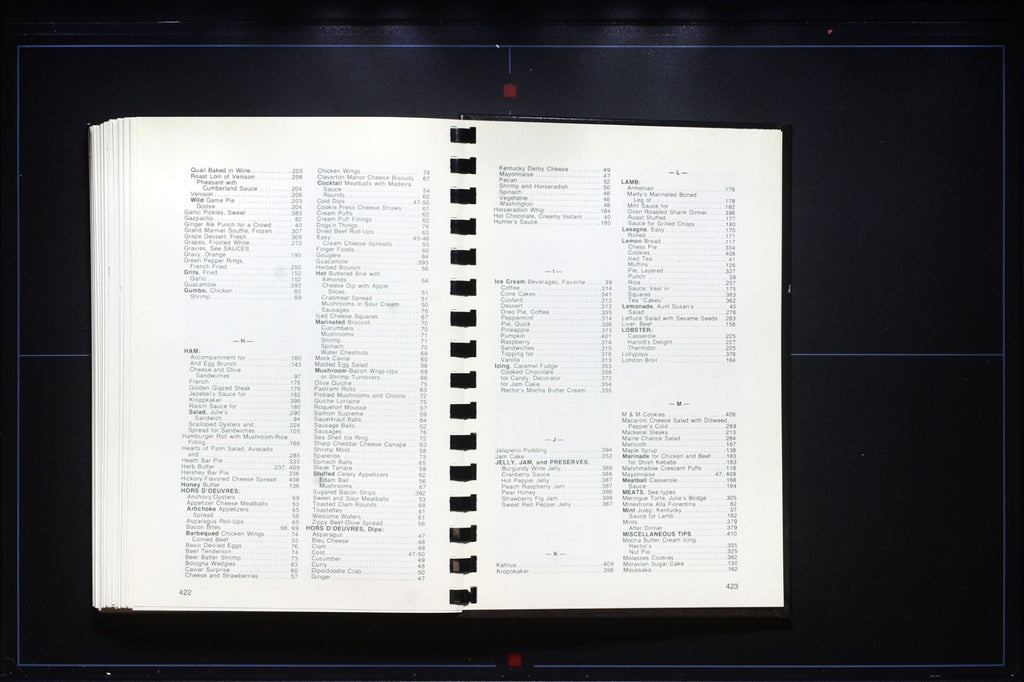 Quail Baked in Wine 205
Roast Loin of Venison 206
Pheasant with
Cumberland Sauce 204
Venison 206
Wild Game Pie 203
Goose 204
Garlic Pickles, Sweet 383
Gazpacho 82
Ginger Ale Punch for a Crowd 40
Grand Marnier Soufflé, Frozen 307
Grape Dessert, Fresh 309
Grapes, Frosted White 273
Gravies, See SAUCES
Gravy, Orange 195
Green Pepper Rings,
French Fried 250
Grits, Fried 152
Garlic 152
Guacamole 393
Gumbo, Chicken 85
Shrimp 89
— H —
HAM:
Accompaniment for 180
And Egg Brunch 143
Cheese and Olive
Sandwiches 97
French 176
Golden Glazed Steak 176
Jezebel's Sauce for 182
Kropokaker 398
Raisin Sauce for 180
Salad, Julie's 290
Sandwich 94
Scalloped Oysters and 224
Spread for Sandwiches 105
Hamburger Roll with Mushroom-Rice
Filling 166
Hearts of Palm Salad, Avocado
and 285
Heath Bar Pie 335
Herb Butter 237, 409
Hershey Bar Pie 336
Hickory-Flavored Cheese Spread 408
Honey Butter 138
HORS D'OEUVRES:
Anchovy Oysters 69
Appetizer Cheese Meatballs 53
Artichoke Appetizers 65
Spread 58
Asparagus Roll-Ups 65
Bacon Bites 68, 69
Barbequed Chicken Wings 74
Corned Beef 55
Basic Deviled Eggs 76
Beef Tenderloin 74
Beer Batter Shrimp 73
Bologna Wedges 63
Caviar Surprise 60
Cheese and Strawberries 57
422
Chicken Wings 74
Claverton Manor Cheese Biscuits 67
Cocktail Meatballs with Madeira
Sauce 54
Rounds 60
Cold Dips 47-50
Cookie Press Cheese Straws 61
Cream Puffs 62
Cream Puff Fillings 62
Dogs'n Things 76
Dried Beef Roll-Ups 63
Easy 45-46
Cream Cheese Spreads 55
Finger Foods 60
Gougère 64
Guacamole 393
Herbed Boursin 56
Hot Buttered Brie with
Almonds 54
Cheese Dip with Apple
Slices 51
Crabmeat Spread 51
Mushrooms in Sour Cream 50
Sausages 76
Iced Cheese Squares 67
Marinated Broccoli 70
Cucumbers 70
Mushrooms 71
Shrimp 71
Spinach 70
Water Chestnuts 69
Mock Caviar 60
Molded Egg Salad 58
Mushroom-Bacon Wrap-Ups 69
or Shrimp Turnovers 66
Olive Quiche 75
Pastrami Rolls 63
Pickled Mushrooms and Onions 72
Quiche Lorraine 75
Roquefort Mousse 57
Salmon Supreme 59
Sauerkraut Balls 64
Sausage Balls 52
Sausages 76
Sea Shell Ice Ring 72
Sharp Cheddar Cheese Canapé 63
Shrimp Mold 58
Spareribs 73
Spinach Balls 65
Steak Tartare 59
Stuffed Celery Appetizers 62
Edam Ball 56
Mushrooms 67
Sugared Bacon Strips 392
Sweet and Sour Meatballs 53
Toasted Clam Rounds 68
Toastettes 61
Welcome Waters 61
Zippy Beef-Olive Spread 56
HORS D'OEUVRES, Dips:
Asparagus 47
Bleu Cheese 48
Clam 49
Cold 47-50
Cucumber 49
Curry 48
Dipsidoodle Crab 50
Ginger 47
Kentucky Derby Cheese 49
Mayonnaise 47
Pecan 52
Shrimp and Horseradish 50
Spinach 48
Vegetable 48
Washington 48
Horseradish Whip 184
Hot Chocolate, Creamy Instant 40
Hunter's Sauce 180
— I —
Ice Cream Beverages, Favorite 39
Coffee 314
Cone Cakes 341
Custard 313
Dessert 313
Oreo Pie, Coffee 335
Peppermint 314
Pie, Quick 326
Pineapple 315
Pumpkin 401
Raspberry 314
Sandwiches 315
Topping for 316
Vanilla 313
Icing, Caramel Fudge 353
Cooked Chocolate 356
for Candy, Decorator 373
for Jam Cake 354
Rector's Mocha Butter Cream 355
— J —
Jalapeno Pudding 394
Jam Cake 352
JELLY, JAM, and PRESERVES:
Burgundy Wine Jelly 388
Cranberry Sauce 388
Hot Pepper Jelly 387
Peach Raspberry Jam 387
Pear Honey 386
Strawberry Fig Jam 388
Sweet Red Pepper Jelly 387
— K —
Kahlua 409
Kropokaker 398
— L —
LAMB:
Armenian 178
Marty's Marinated Boned
Leg of 178
Mint Sauce for 182
Oven Roasted Shank Dinner 396
Roast Stuffed 177
Sauce for Grilled Chops 180
Lasagna, Easy 170
Rolled 171
Lemon Bread 117
Chess Pie 334
Cookies 408
Iced Tea 41
Muffins 126
Pie, Layered 327
Punch 39
Rice 257
Sauce, Veal in 175
Squares 363
Tea "Cakes" 362
Lemonade, Aunt Susan's 40
Salad 276
Lettuce Salad with Sesame Seeds 283
Liver, Beef 158
LOBSTER:
Casserole 225
Harold's Delight 227
Thermidor 225
Lollypops 378
London Broil 164
— M —
M & M Cookies 408
Macaroni Cheese Salad with Dilweed
Pepper's Cold 289
Mackerel Steaks 213
Maine Chance Salad 284
Manicotti 167
Maple Syrup 138
Marinade for Chicken and Beef 183
for Shish Kebabs 163
Marshmallow Crescent Puffs 118
Mayonnaise 47, 409
Meatball Casserole 168
Sauce 184
MEATS, See types
Meringue Torte, Julie's Bridge 305
Minestrone Alla Fiorentina 82
Mint Julep, Kentucky 37
Sauce for Lamb 182
Mints 379
After Dinner 379
MISCELLANEOUS TIPS 410
Mocha Butter Cream Icing,
Rector's 355
Nut Pie 325
Molasses Cookies 362
Moravian Sugar Cake 130
Moussaka 162
423